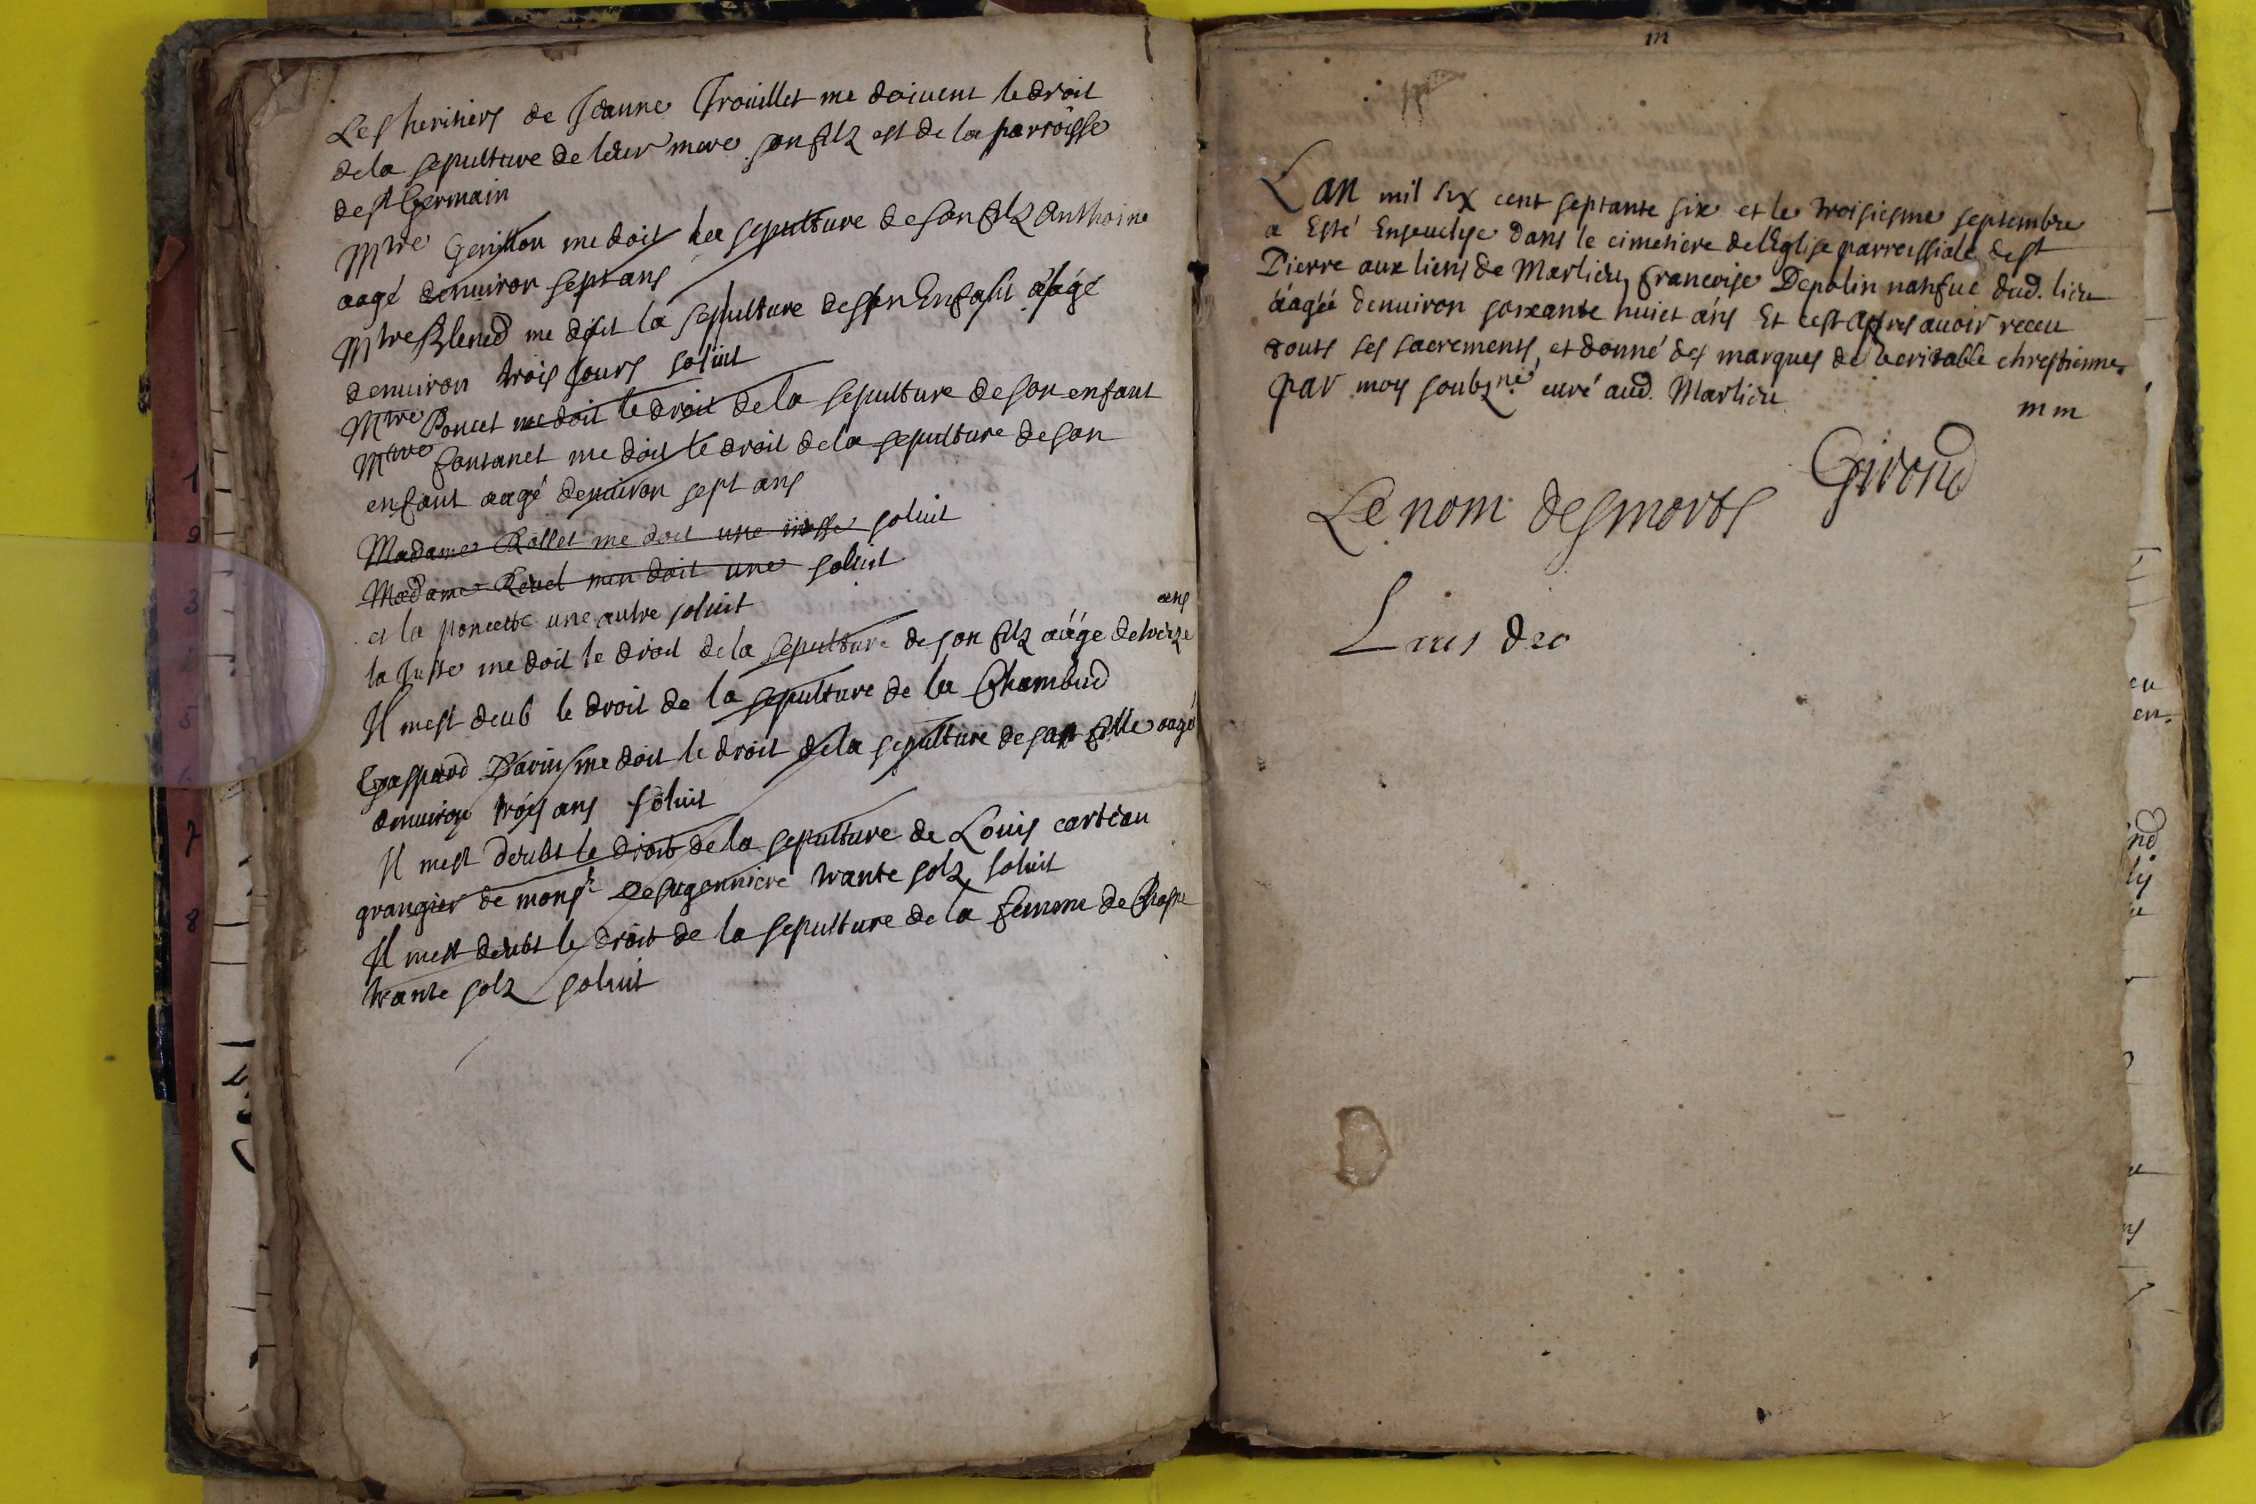 Les heritiers de Jeanne Trouillet me doivent le droit
de la sepulture de leur mere son filz est de la parroisse
de st Germain
Mtre Genillon me doit la sepulture de son filz Anthoine
aagé denuiron sept ans
Mtre Blened me doit la sepulture de son Enfant aagé
denuiron trois Jours soluit
Mtre Poncet me doit le droit de la sepulture de son enfant
Mtre Contanet me doit le droit de la sepulture de son
enfant aagé denuiron sept ans
Madame Rollet me doit une messe soluit
Madame Revel men doit une soluit
et la poncette une autre soluit
ans
la Juste me doit le droit de la sepulture de son filz aagé de treize
Il mest deub le droit de la sepulture de la Chambud
Gaspard me doit le droit de la sepulture de sa fille aagé
denuiron trois ans soluit
Il mest deubt le droit de la sepulture de Louis carteau
grangier de monsr trante solz soluit
Il mest deubt le droit de la sepulture de la femme de
trante solz soluit
m
Lan mil six cent septante six et le troisiesme septembre
a Esté Enseuelye dans le cimetiere de lEglise parroissiale de st
Pierre aux liens de Marlieu, francoise Depolin natifue dud. lieu
aagée denuiron soixante huict ans Et cest apres auoir receu
touts ses sacrements, et donné des marques de veritable chrestienne.
par moy soubzné curé aud. Marlieu
mm
Giroud
Le nom des morts
Laus deo